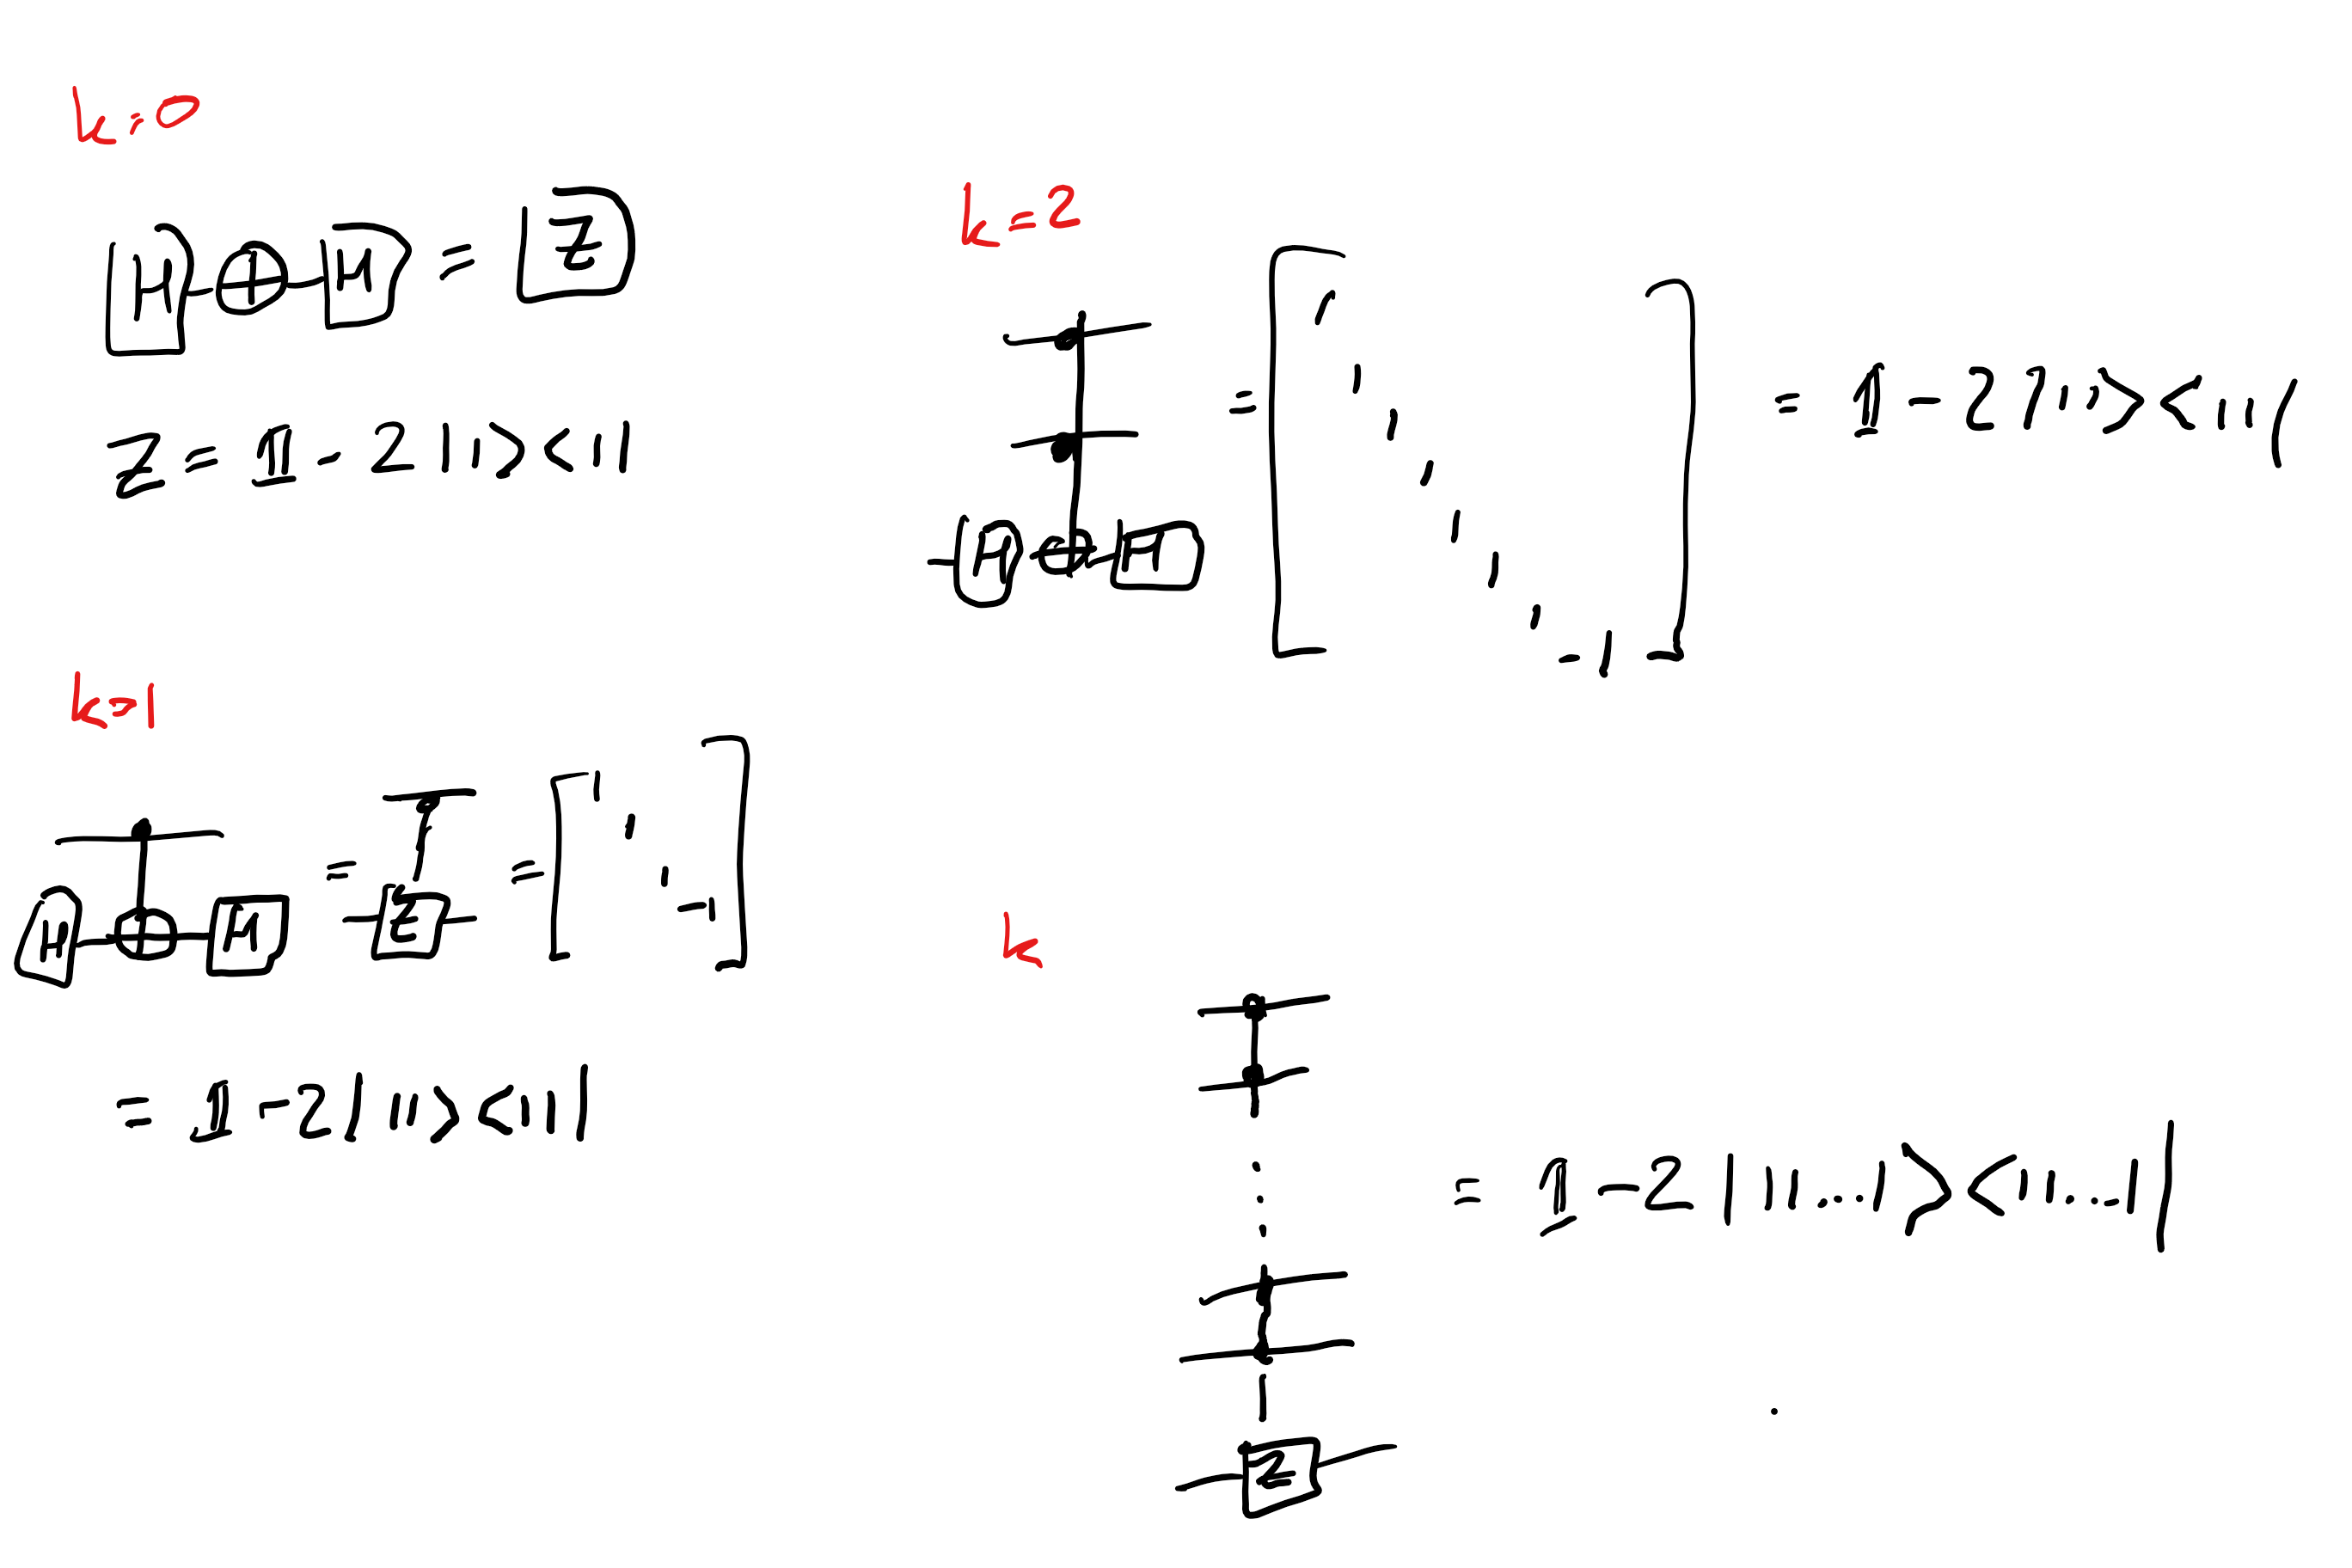 k=0
H ⊕ H = Z
Z = 𝟙 - 2 |1><1|
k=1
H ⊕ H = Z = [1 1 1 -1]
= 𝟙 - 2 |11><11|
k=2
H ⊕ H = [1 1 1 1 1 1 1 -1] = 𝟙 - 2 |111><111|
k
Z = 𝟙 - 2 |11....1><11...1|